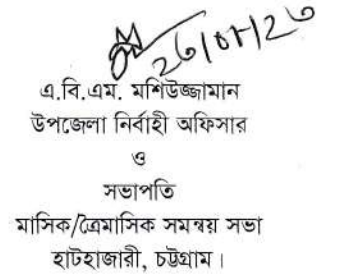 ২৬/০৮/২৬
এ.বি.এম. মশিউজ্জামান
উপজেলা নির্বাহী অফিসার
ও
সভাপতি
মাসিক/ত্রৈমাসিক সমন্বয় সভা
হাটহাজারী, চট্টগ্রাম।